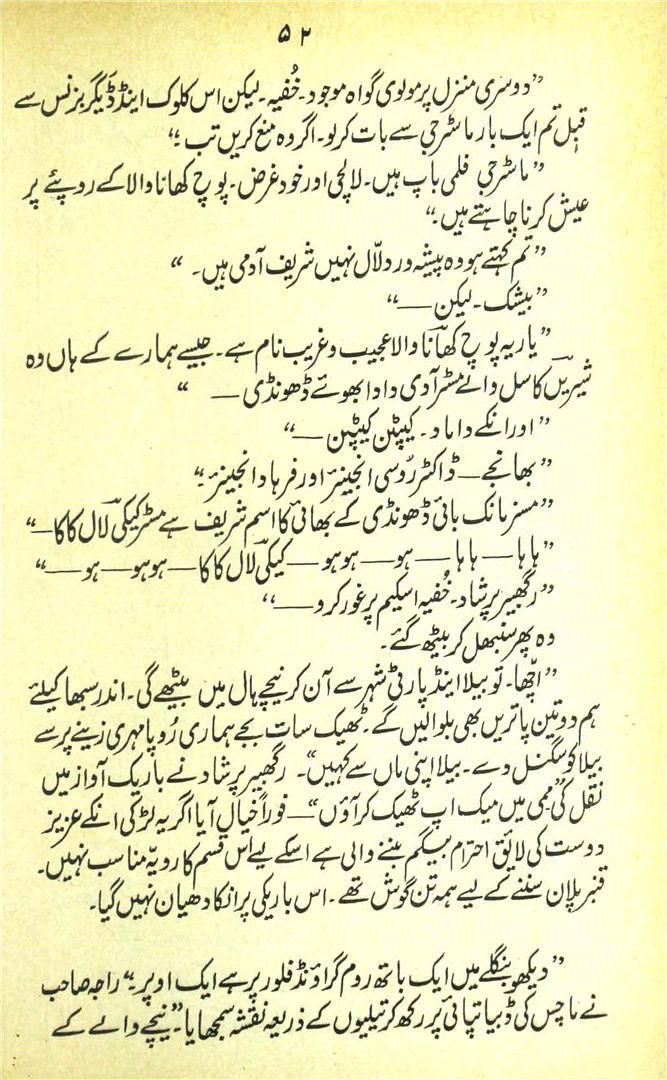 ۵۲
”دوسری منزل پر مولوی گواہ موجود۔ خُفیہ۔ لیکن اس کلوک اینڈ ڈیگر بزنس سے
قبل تم ایک بار ماسٹر جی سے بات کر لو۔ اگر وہ منع کریں تب ؛“
”ماسٹر جی فلمی باپ ہیں۔ لالچی اور خود غرض۔ پوچ کھانا والا کے روپئے پر
عیش کرنا چاہتے ہیں۔“
”تم کہتے ہو وہ پیشہ ور دلّال نہیں شریف آدمی ہیں۔ “
”بیشک۔ لیکن —“
”یار یہ پوچ کھانا والا عجیب و غریب نام ہے۔ جیسے ہمارے کے ہاں وہ
شیریں کاسل والے مسٹر آدی دادا بھوئے ڈھونڈی — “
”اور انکے داماد۔ کیپٹن کیپٹن —“
”بھانجے — ڈاکٹر روسی انجینئر اور فرہاد انجینئر۔“
”مسز مانک بائی ڈھونڈی کے بھائی کا اسم شریف ہے مسٹر کیکی لال کاکا—“
”ہاہا — ہاہا — ہو — ہوہو — کیکی لال کاکا — ہوہو — ہو —“
”رگھبیر پرشاد۔ خُفیہ اسکیم پر غور کرو —“
وہ پھر سنبھل کر بیٹھ گئے۔
”اچّھا۔ تو بیلا اینڈ پارٹی شہر سے آن کر نیچے ہال میں بیٹھے گی۔ اندر سبھا کیلئے
ہم دو تین پاتریں بھی بلوالیں گے۔ ٹھیک سات بجے ہماری رُوپا مہری زینے پر سے
بیلا کو سگنل دے۔ بیلا اپنی ماں سے کہیں“۔ رگھبیر پرشاد نے باریک آواز میں
نقل کی ”ممی میں میک اپ ٹھیک کر آؤں“ — فوراً خیال آیا اگر یہ لڑکی انکے عزیز
دوست کی لائق احترام بیگم بننے والی ہے اسکے لیے اس قسم کا رویّہ مناسب نہیں۔
قنبر پلان سننے کے لیے ہمہ تن گوش تھے۔ اس باریکی پر انکا دھیان نہیں گیا۔
”دیکھو بنگلے میں ایک باتھ روم گراؤنڈ فلور پر ہے ایک اوپر۔“ راجہ صاحب
نے ماچس کی ڈبیا تپائی پر رکھ کر تیلیوں کے ذریعہ نقشہ سمجھایا۔ ”نیچے والے کے